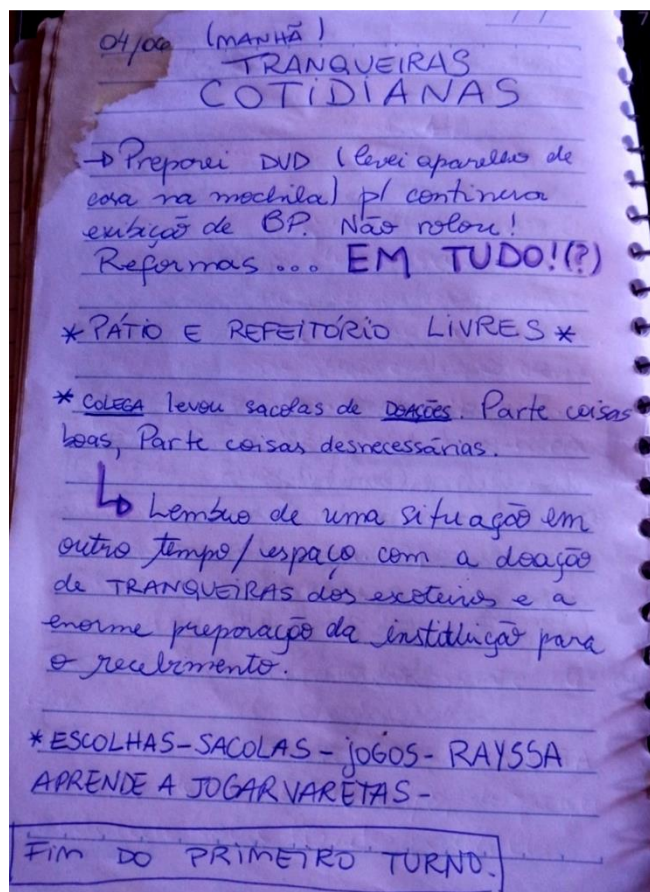 04/06 (MANHÃ)
TRANQUEIRAS
COTIDIANAS
→ Preparei DVD (levei aparelho de
casa na mochila) p/ continuar
exibição de BP. Não rolou!
Reformas... EM TUDO!(?)
* PÁTIO E REFEITÓRIO LIVRES *
* COLEGA levou sacolas de DOAÇÕES. Parte coisas
boas, Parte coisas desnecessárias.
↳ Lembro de uma situação em
outro tempo/espaço com a doação
de TRANQUEIRAS dos escoteiros e a
enorme preparação da instituição para
o recebimento.
* ESCOLHAS - SACOLAS - JOGOS - RAYSSA
APRENDE A JOGAR VARETAS -
FIM DO PRIMEIRO TURNO.